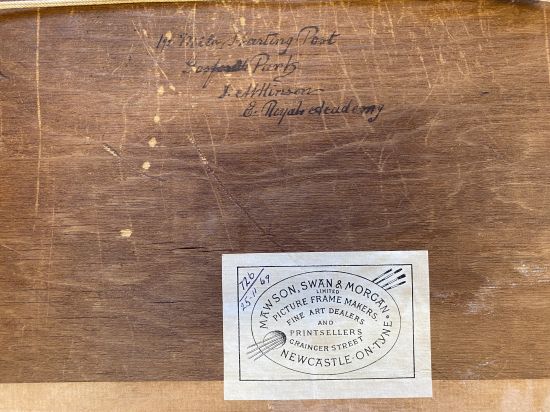 1½ Mile, Starting Post
Gosforth Park
J. Atkinson
E. Royal Academy
T26
25-11-69
MAWSON, SWAN & MORGAN
LIMITED
PICTURE FRAME MAKERS,
FINE ART DEALERS
AND
PRINTSELLERS
GRAINGER STREET
NEWCASTLE-ON-TYNE